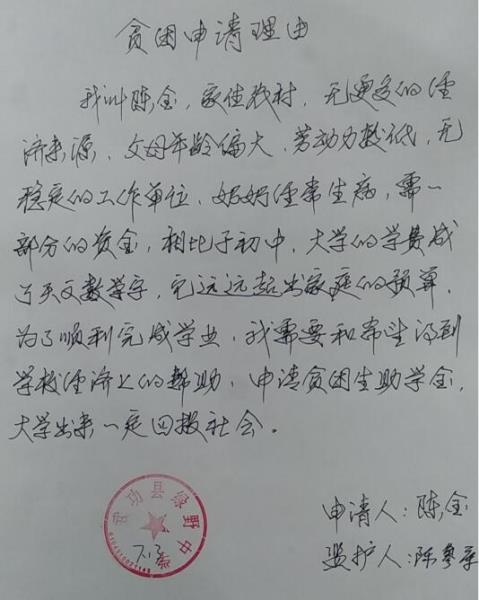 贫困申请理由
我叫陈金，家住农村，无更多的经
济来源，父母年龄偏大，劳动力较低，无
稳定的工作单位，妈妈经常生病，需一
部分的资金，相比于初中，大学的学费成
了天文数学字，它远远超出家庭的预算，
为了顺利完成学业，我需要和希望得到
学校经济上的帮助，申请贫困生助学金，
大学出来一定回报社会。
武功县绿野中学
申请人：陈金
监护人：陈